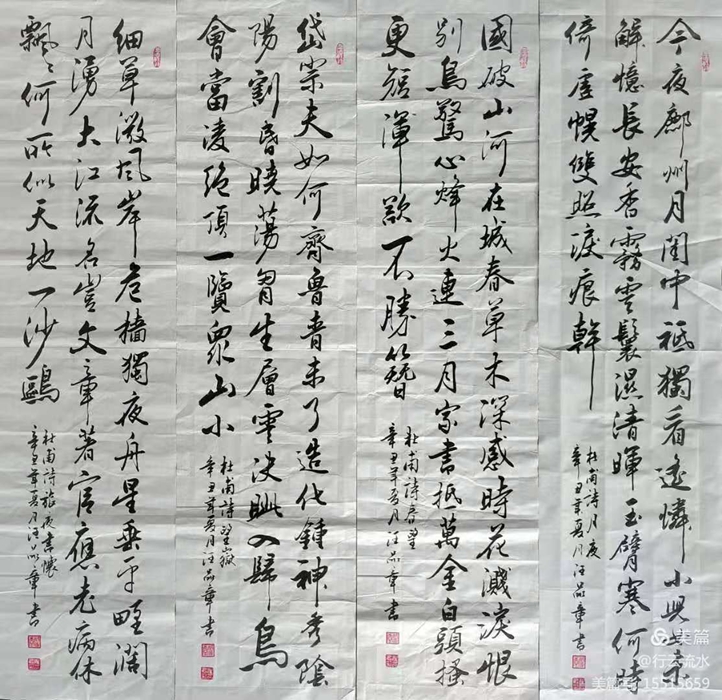 今夜鄜州月閨中祗獨看遙憐小兒女未
解憶長安香霧雲鬟濕清暉玉臂寒何時
倚虛幌雙照淚痕幹
杜甫詩月夜
辛丑年夏月汪品章書
國破山河在城春草木深感時花濺淚恨
別鳥驚心烽火連三月家書抵萬金白頭搔
更短渾欲不勝簪
杜甫詩春望
辛丑年夏月汪品章書
岱宗夫如何齊魯青未了造化鍾神秀陰
陽割昏曉蕩胸生層雲決眦入歸鳥
會當凌絕頂一覽眾山小
杜甫詩望嶽
辛丑年夏月汪品章書
細草微風岸危檣獨夜舟星垂平野闊
月湧大江流名豈文章著官應老病休
飄〻何所似天地一沙鷗
杜甫詩旅夜書懷
辛丑年夏月汪品章書
美篇
@行云流水